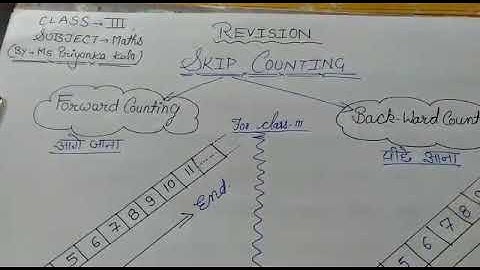 CLASS → III
SUBJECT → Maths
(By → MS. Priyanka Kala)
REVISION
SKIP COUNTING
Forward Counting
आगे जाना
For class-III
Back-Ward Count
पीछे आना
5 6 7 8 9 10 11 .....
End
5 6 7 8 9